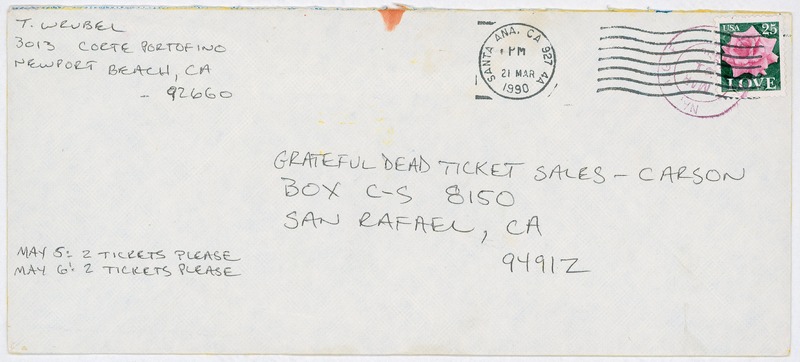 T. WRUBEL
3013 CORTE PORTOFINO
NEWPORT BEACH, CA
- 92660
SANTA ANA, CA 927 4A
PM
21 MAR
1990
USA 25
LOVE
GRATEFUL DEAD TICKET SALES - CARSON
BOX C-S 8150
SAN RAFAEL, CA
94912
MAY 5: 2 TICKETS PLEASE
MAY 6: 2 TICKETS PLEASE